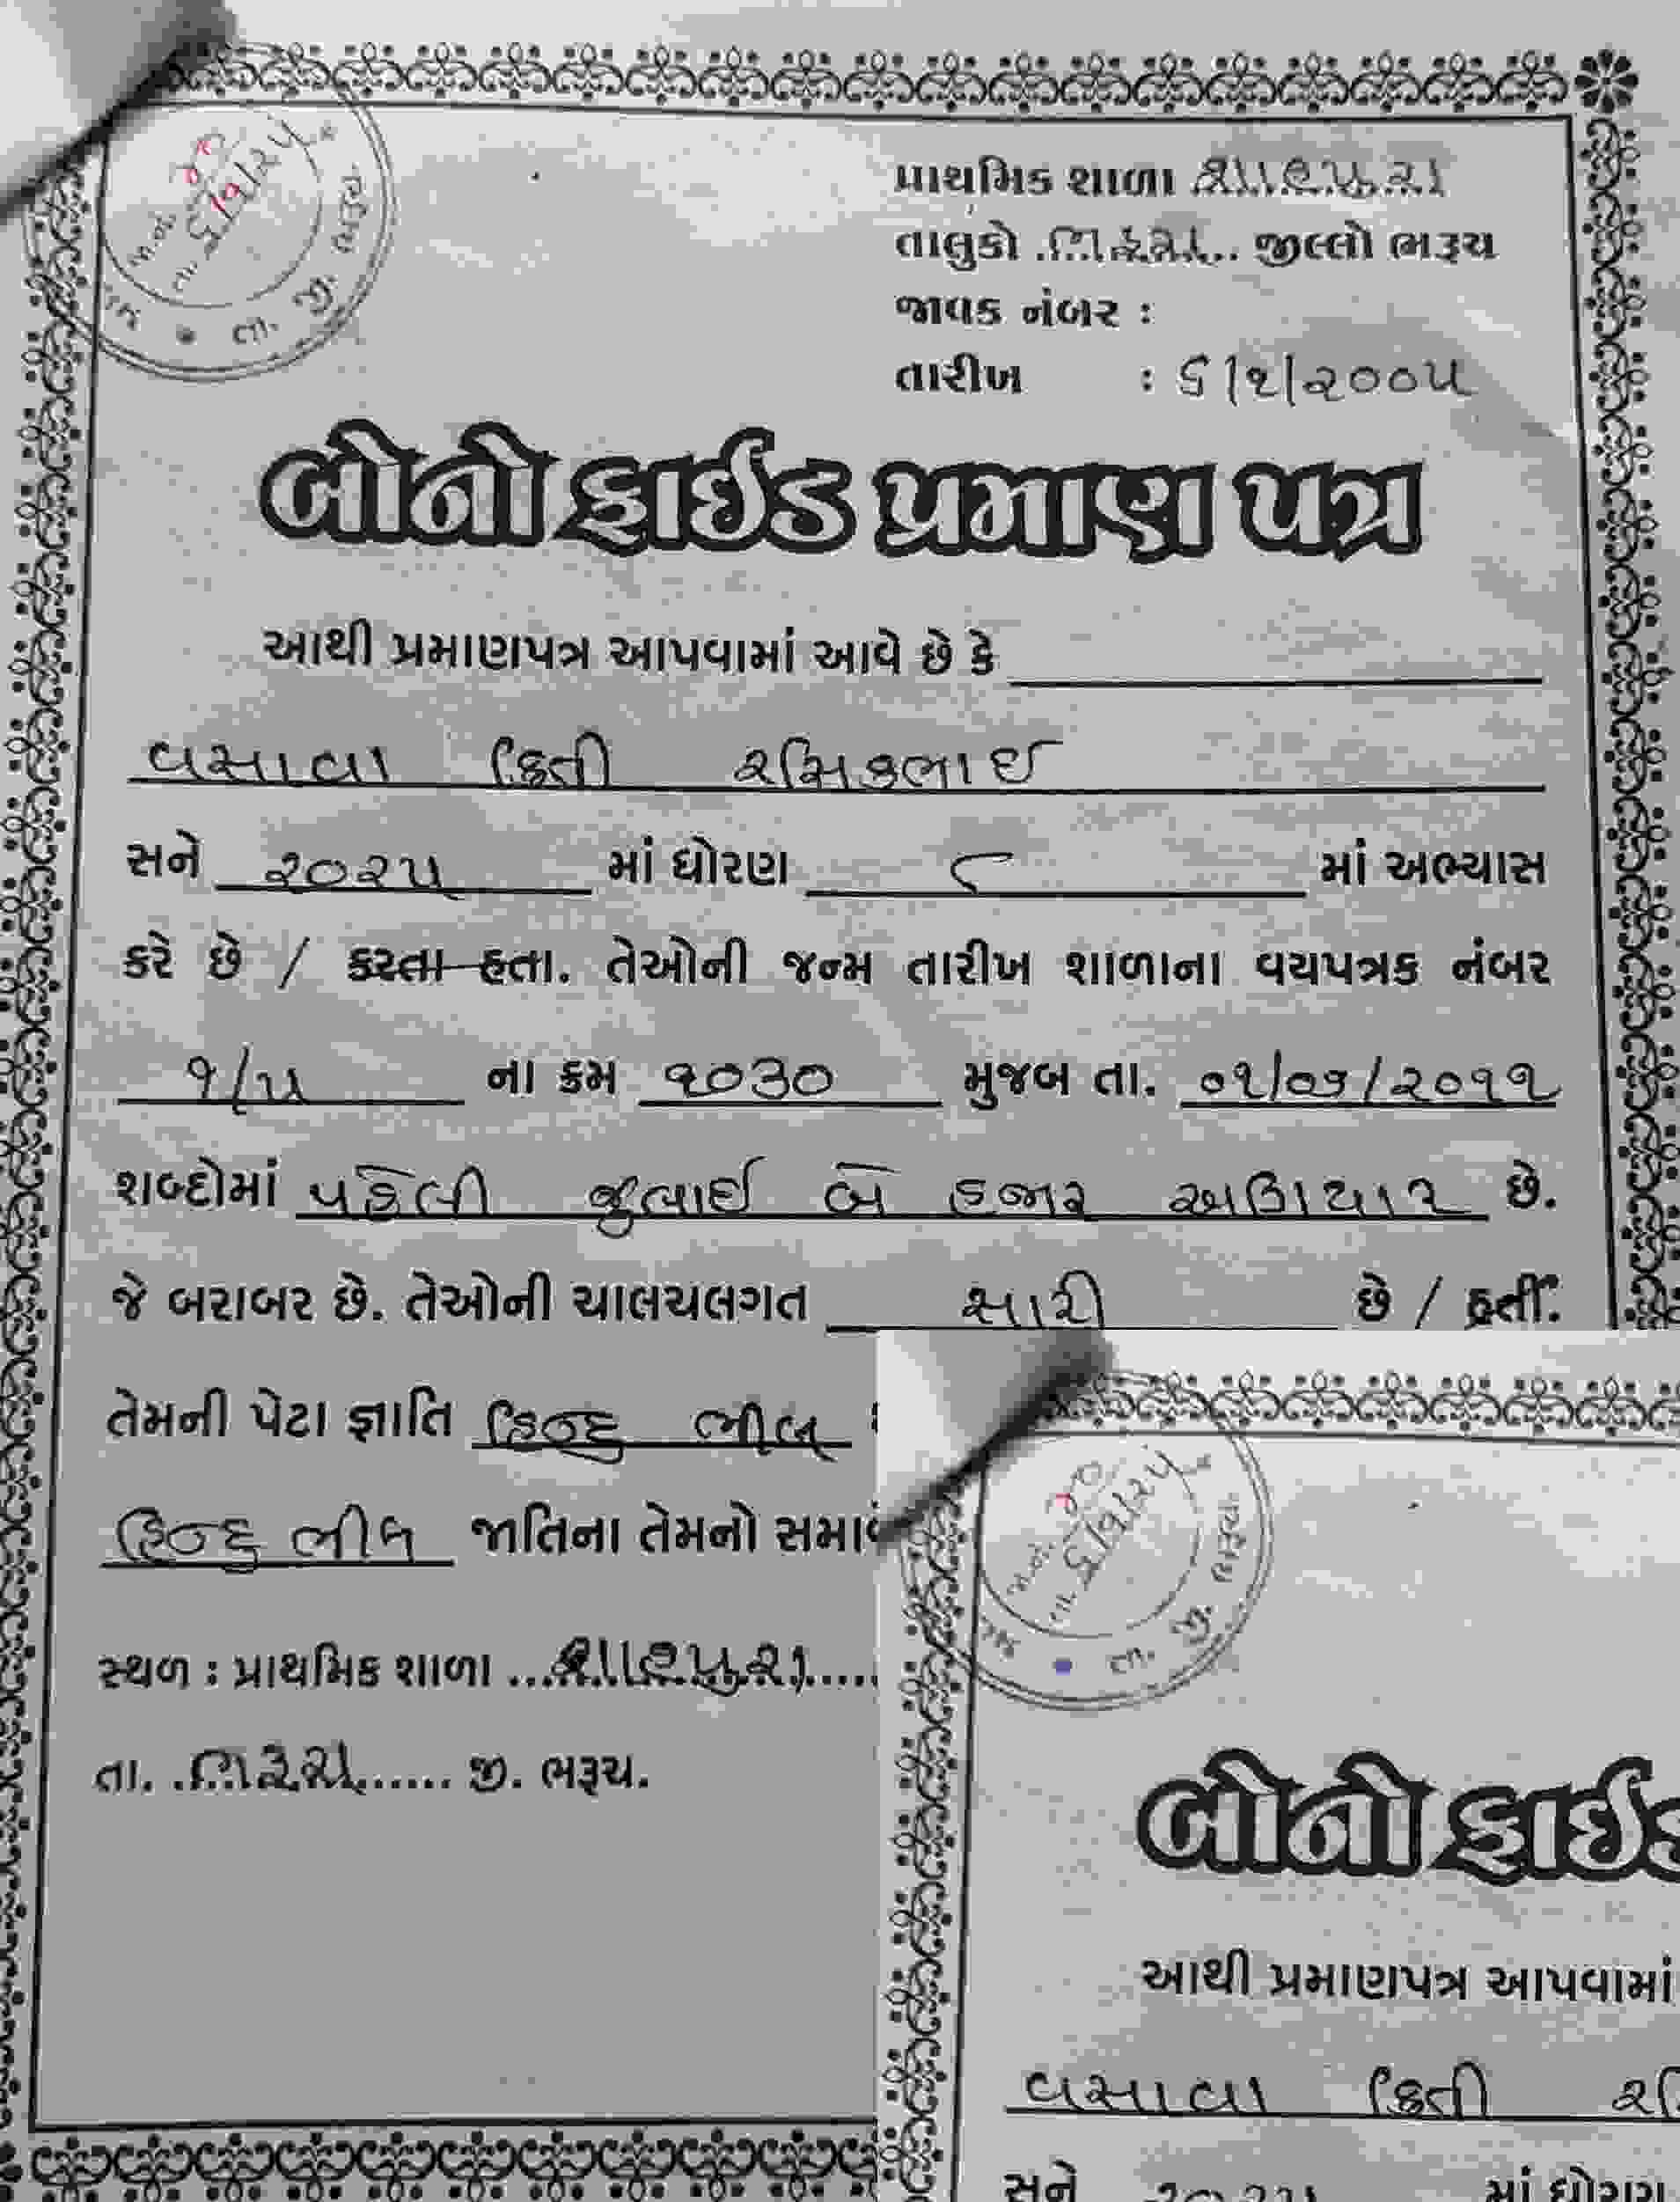 પ્રાથમિક શાળા શાહપુરા
તાલુકો ભરૂચ જીલ્લો ભરૂચ
જાવક નંબર :
તારીખ : ૬/૧/૨૦૦૫
બોનો ફાઈડ પ્રમાણ પત્ર
આથી પ્રમાણપત્ર આપવામાં આવે છે કે
વસાવા ક્રિતી રસિકભાઈ
સને ૨૦૨૫ માં ધોરણ ૮ માં અભ્યાસ
કરે છે / કરતા હતા. તેઓની જન્મ તારીખ શાળાના વયપત્રક નંબર
૧/૫ ના ક્રમ ૧૦૩૦ મુજબ તા. ૦૧/૦૭/૨૦૧૧
શબ્દોમાં પહેલી જુલાઈ બે હજાર અગિયાર છે.
જે બરાબર છે. તેઓની ચાલચલગત સારી છે / હતી.
તેમની પેટા જ્ઞાતિ હિન્દુ ભીલ
હિન્દુ ભીલ જાતિના તેમનો
સ્થળ : પ્રાથમિક શાળા શાહપુરા
તા. ભરૂચ જી. ભરૂચ.
તા. ૬/૧/૨૫
તા. જિ. ભરૂચ
બોનો ફાઈડ
આથી પ્રમાણપત્ર આપવામાં
વસાવા ક્રિતી
સને ૨૦૨૫ માં ધોરણ